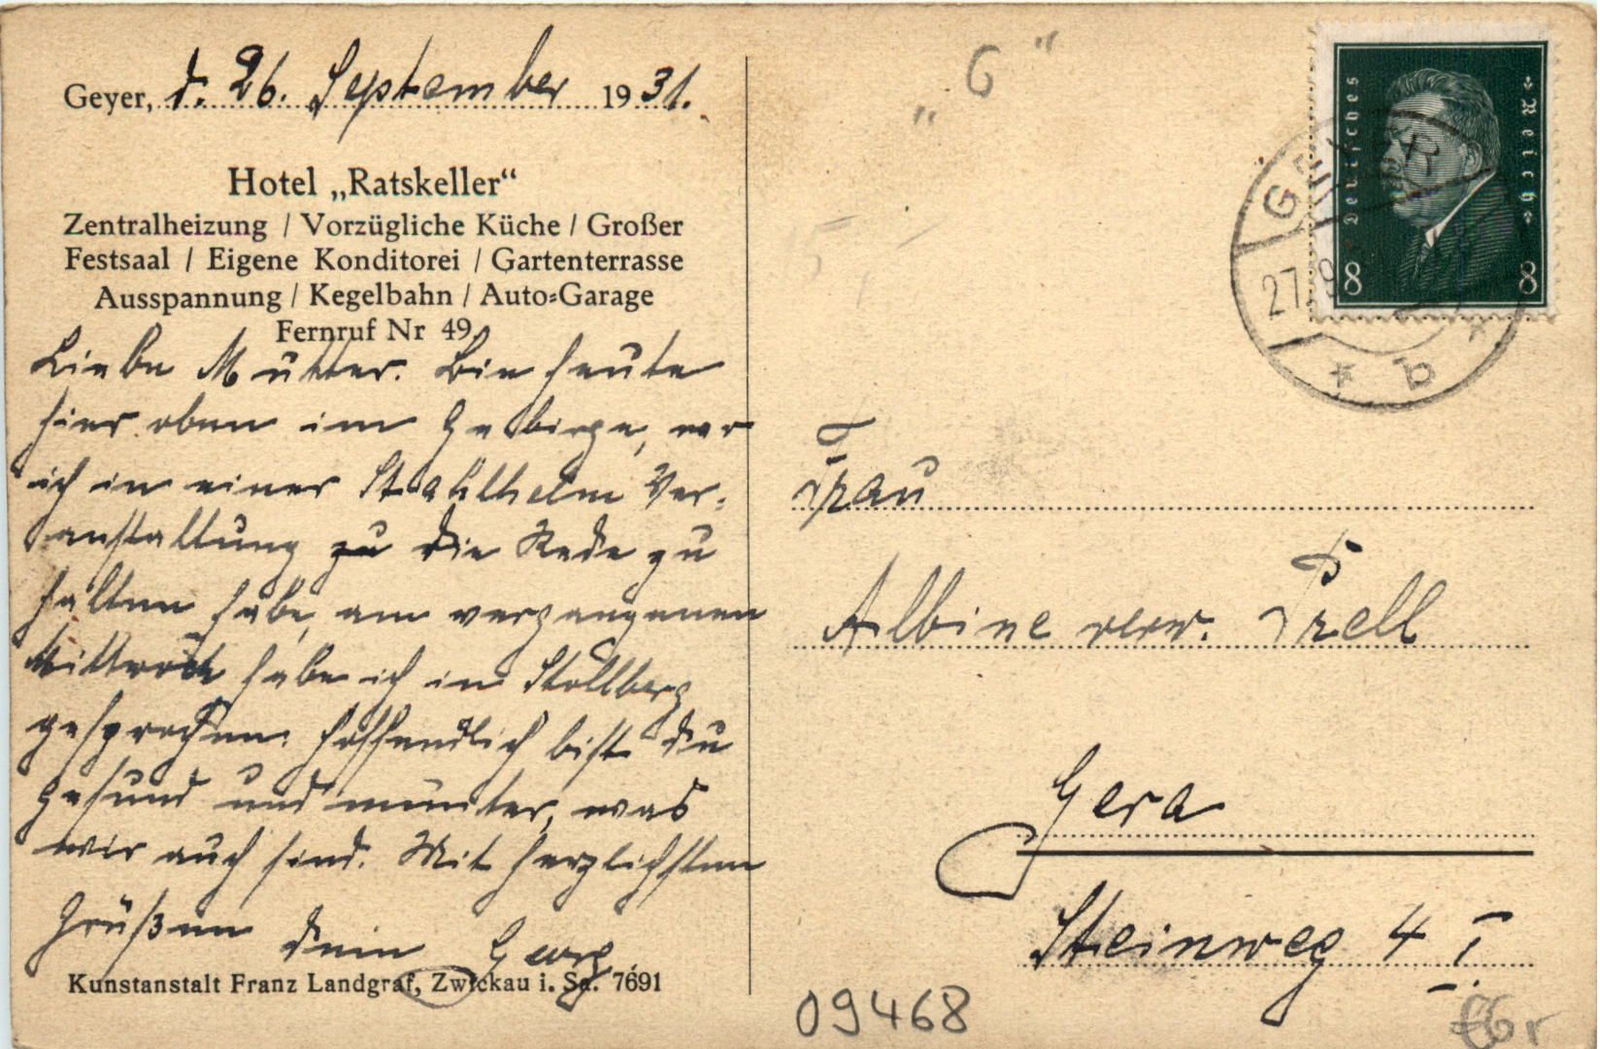 Geyer, d. 26. September 1931.
Hotel „Ratskeller“
Zentralheizung / Vorzügliche Küche / Großer
Festsaal / Eigene Konditorei / Gartenterrasse
Ausspannung / Kegelbahn / Auto=Garage
Fernruf Nr 49.
Liebe Mutter. Bin heute
hier oben im Gebirge, wo
ich in einer Stahlhelm Ver-
anstaltung zu die Rede zu
halten habe, am vergangenen
Mittwoch habe ich in Stollberg
gesprochen. Hoffendlich bist Du
gesund und munter, was
wir auch sind. Mit herzlichsten
Grüßen Dein Georg.
Kunstanstalt Franz Landgraf, Zwickau i. Sa. 7691
„ G “
Deutsches Reich
8 8
GEYER
27.9.
* b *
Frau
Albine verw. Prell
Gera
Steinweg 4 I.
09468